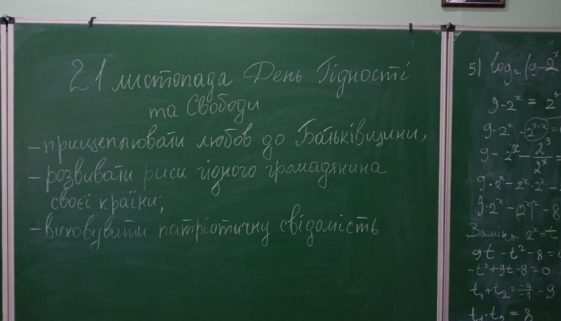 21 листопада День Гідності
та Свободи
- прищеплювати любов до Батьківщини,
- розвивати риси гідного громадянина
своєї країни;
- виховувати патріотичну свідомість
5) log₂(9-2ˣ
9-2ˣ = 2³
9-2ˣ-2³⁻ˣ=
9-2ˣ-2³/2ˣ=
9·2ˣ-2ˣ·2ˣ-
9·2ˣ-(2ˣ)²-8
Заміна 2ˣ=t
9t-t²-8=0
-t²+9t-8=0
t₁·t₂=8